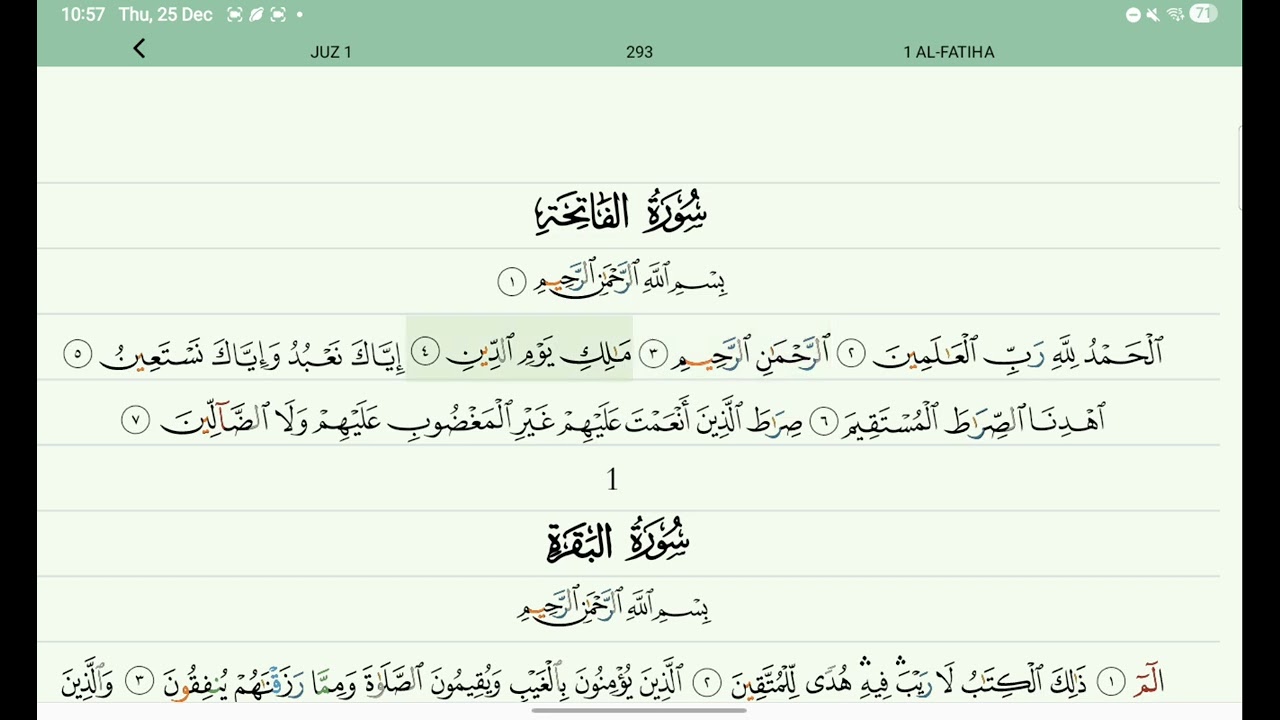 10:57 Thu, 25 Dec 71
JUZ 1 293 1 AL-FATIHA
سُورَةُ الفَاتِحَةِ
بِسْمِ ٱللَّهِ ٱلرَّحْمَٰنِ ٱلرَّحِيمِ ١
ٱلْحَمْدُ لِلَّهِ رَبِّ ٱلْعَٰلَمِينَ ٢ ٱلرَّحْمَٰنِ ٱلرَّحِيمِ ٣ مَٰلِكِ يَوْمِ ٱلدِّينِ ٤ إِيَّاكَ نَعْبُدُ وَإِيَّاكَ نَسْتَعِينُ ٥
ٱهْدِنَا ٱلصِّرَٰطَ ٱلْمُسْتَقِيمَ ٦ صِرَٰطَ ٱلَّذِينَ أَنْعَمْتَ عَلَيْهِمْ غَيْرِ ٱلْمَغْضُوبِ عَلَيْهِمْ وَلَا ٱلضَّآلِّينَ ٧
1
سُورَةُ البَقَرَةِ
بِسْمِ ٱللَّهِ ٱلرَّحْمَٰنِ ٱلرَّحِيمِ
الٓمٓ ١ ذَٰلِكَ ٱلْكِتَٰبُ لَا رَيْبَ ۛ فِيهِ ۛ هُدًى لِّلْمُتَّقِينَ ٢ ٱلَّذِينَ يُؤْمِنُونَ بِٱلْغَيْبِ وَيُقِيمُونَ ٱلصَّلَوٰةَ وَمِمَّا رَزَقْنَٰهُمْ يُنفِقُونَ ٣ وَٱلَّذِينَ